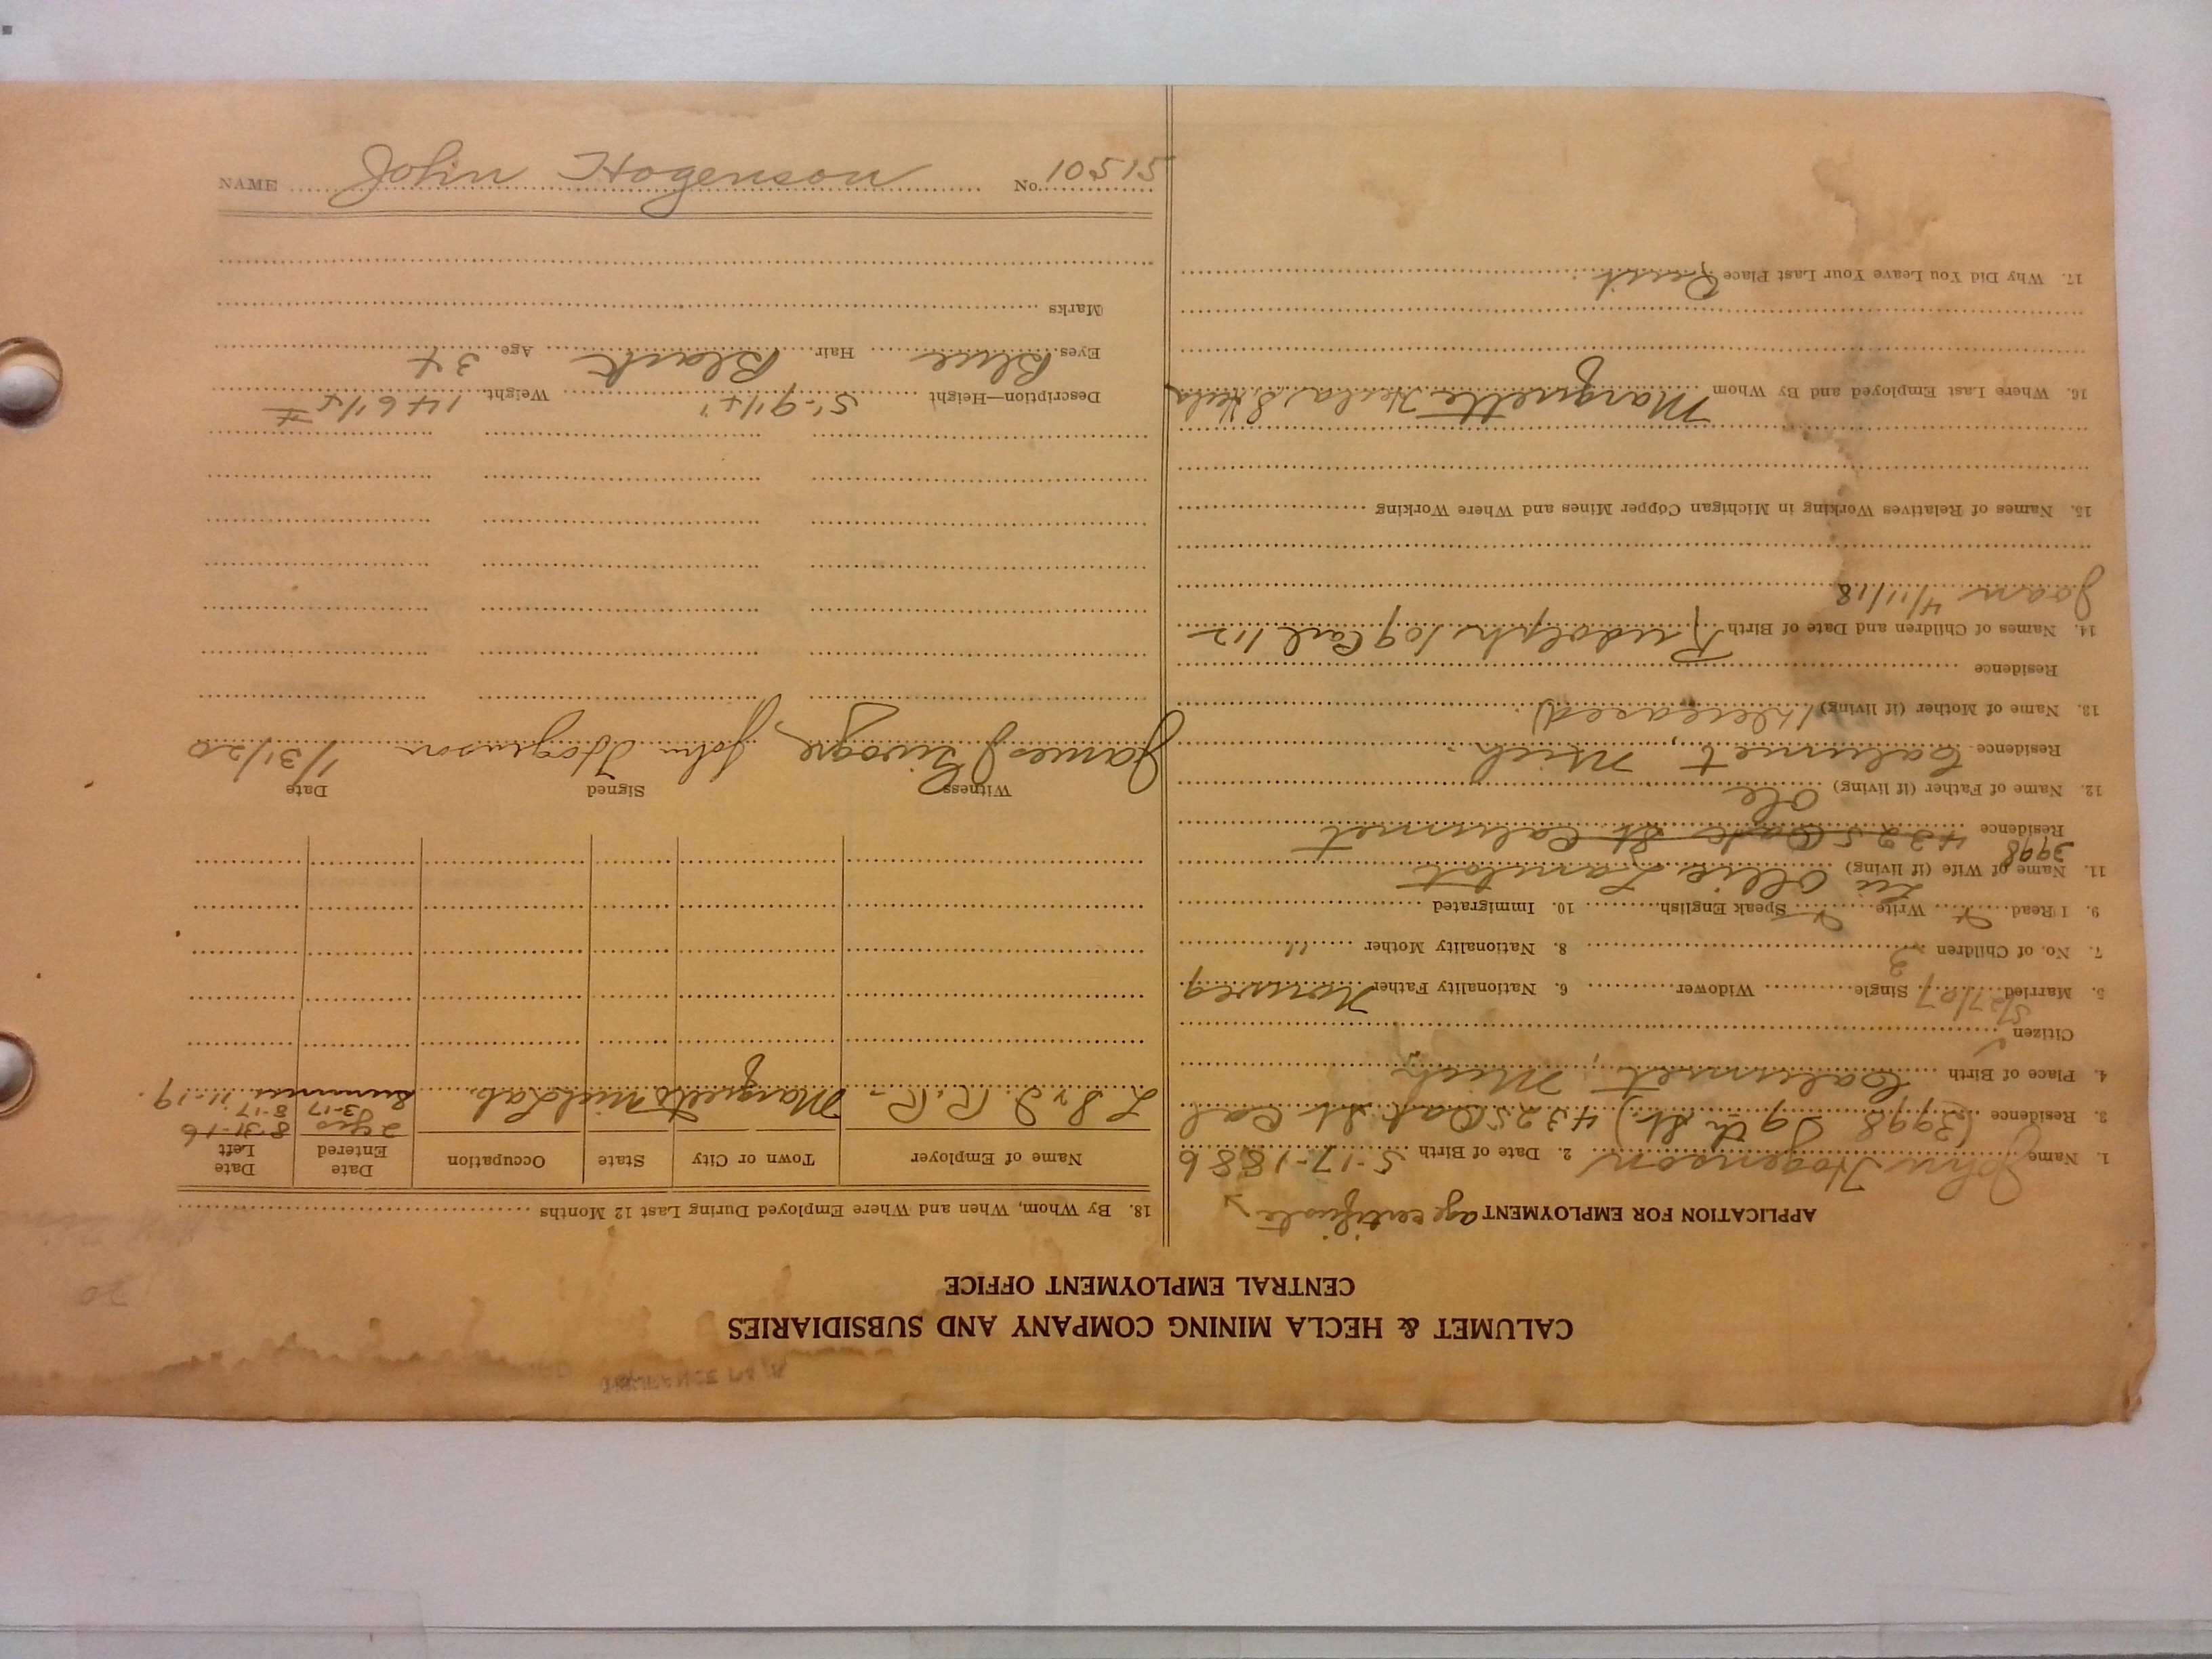 CALUMET & HECLA MINING COMPANY AND SUBSIDIARIES
CENTRAL EMPLOYMENT OFFICE
APPLICATION FOR EMPLOYMENT age certificate
1. Name John Hogenson 2. Date of Birth 5-17-1886
3. Residence (3998 9th St.) 4325 Oak St Cal
4. Place of Birth Calumet, Mich
Citizen
5. Married 5/27/07 Single Widower 6. Nationality Father Norweg
7. No. of Children 2 8. Nationality Mother "
9. I Read Write Speak English 10. Immigrated
11. Name of Wife (if living) Ollie
3998
Residence 4325 Oak St Calumet
12. Name of Father (if living) Ole
Residence Calumet, Mich.
13. Name of Mother (if living) (deceased)
Residence
14. Names of Children and Date of Birth Rudolph 109 Carl 112
Joan 4/11/18
15. Names of Relatives Working in Michigan Copper Mines and Where Working
16. Where Last Employed and By Whom Marquette
17. Why Did You Leave Your Last Place Quit
18. By Whom, When and Where Employed During Last 12 Months
Name of Employer Town or City State Occupation Date Entered Date Left
2 yrs 8-31-16
3-17 8-17
L. S & I. R. R. Marquette Mich Lab. Summer 11-19
Witness Signed Date
James J John Hogenson 1/31/20
Description—Height 5'-9 1/4" Weight 146 1/4 #
Eyes Blue Hair Black Age 34
Marks
NAME John Hogenson No. 10515